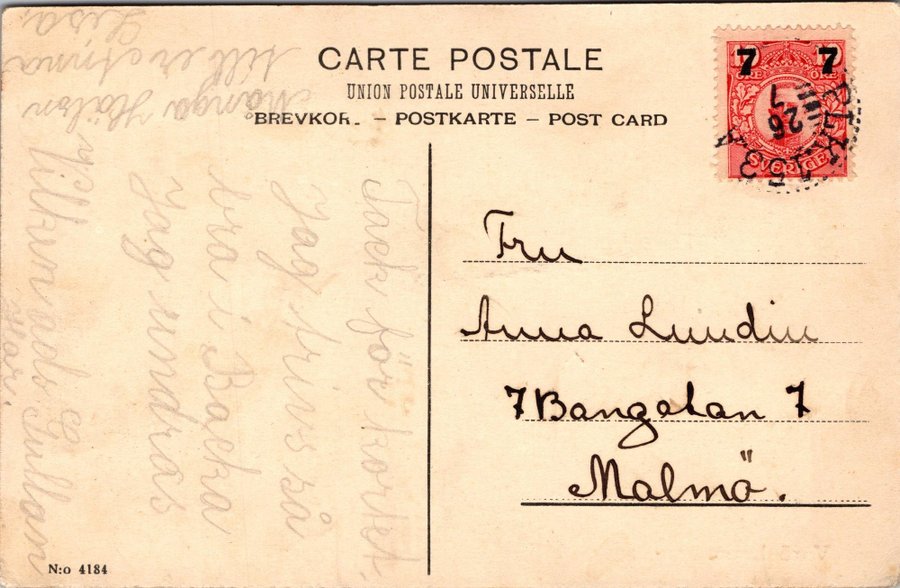 CARTE POSTALE
UNION POSTALE UNIVERSELLE
BREVKOR. – POSTKARTE – POST CARD
7 7
ÖRE
SVERIGE
PLK 153 A
26
7
Fru
Anna Lundin
7 Bangatan 7
Malmö.
Tack för kortet.
Jag trivs så
bra i Backa
Jag undras
vilken
Gullan
Många
till er
Lisa
N:o 4184